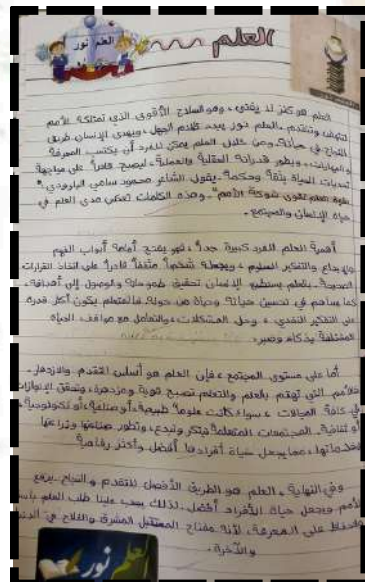 العلم
العلم نور
العلم هو كنز لا يفنى، وهو السلاح الأقوى الذي تمتلكه الأمم
لتنهض وتتقدم. العلم نور يبدد ظلام الجهل، ويهدي الإنسان طريق
النجاح في حياته. ومن خلال العلم يمكن للفرد أن يكتسب المعرفة
والمهارات، ويطور قدراته العقلية والعملية، ليصبح قادراً على مواجهة
تحديات الحياة بثقة وحكمة. يقول الشاعر محمود سامي البارودي:"
بقوة العلم تقوى شوكة الأمم". وهذه الكلمات تعكس مدى العلم في
حياة الإنسان والمجتمع.
أهمية العلم للفرد كبيرة جداً، فهو يفتح أمامه أبواب الفهم
والإبداع والتفكير السليم، ويجعله شخصاً مثقفاً قادراً على اتخاذ القرارات
الصحيحة. بالعلم يستطيع الإنسان تحقيق طموحاته والوصول إلى أهدافه،
كما يساهم في تحسين حياته وحياة من حوله. فالمتعلم يكون أكثر قدرة
على التفكير النقدي، وحل المشكلات، والتعامل مع مواقف الحياة
المختلفة بذكاء وصبر.
أما على مستوى المجتمع، فإن العلم هو أساس التقدم والازدهار.
فالأمم التي تهتم بالعلم والتعلم تصبح قوية ومزدهرة، وتحقق الإنجازات
في كافة المجالات، سواء كانت علوماً طبيعية، أو صناعية، أو تكنولوجية،
أو ثقافية. المجتمعات المتعلمة تبتكر وتبدع، وتطور صناعتها وزراعتها
وخدماتها، مما يجعل حياة أفرادها أفضل وأكثر رفاهية
وفي النهاية، العلم هو الطريق الأفضل للتقدم والنجاح يرفع
الأمم ويجعل حياة الأفراد أفضل. لذلك يجب علينا طلب العلم
والحفاظ على المعرفة، لأنه مفتاح المستقبل المشرق والفلاح في
والآخرة.
العلم نور